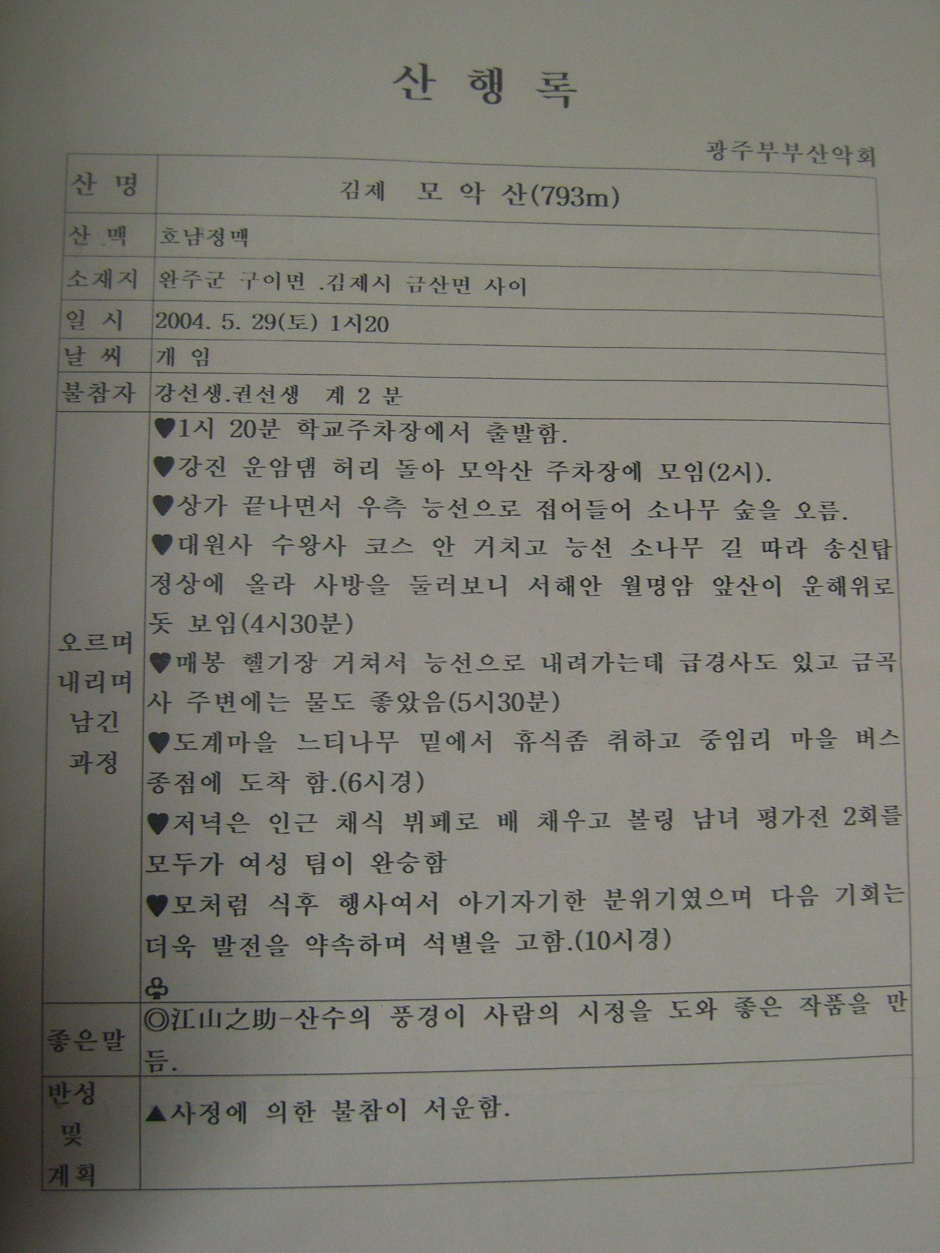 산 행 록
광주부부산악회
산 명 김제 모 악 산(793m)
산 맥 호남정맥
소재지 완주군 구이면 .김제시 금산면 사이
일 시 2004. 5. 29(토) 1시20
날 씨 개 임
불참자 강선생.권선생 계 2 분
오르며
내리며
남긴
과정
♥1시 20분 학교주차장에서 출발함.
♥강진 운암댐 허리 돌아 모악산 주차장에 모임(2시).
♥상가 끝나면서 우측 능선으로 접어들어 소나무 숲을 오름.
♥대원사 수왕사 코스 안 거치고 능선 소나무 길 따라 송신탑
정상에 올라 사방을 둘러보니 서해안 월명암 앞산이 운해위로
돗 보임(4시30분)
♥매봉 헬기장 거쳐서 능선으로 내려가는데 급경사도 있고 금곡
사 주변에는 물도 좋았음(5시30분)
♥도계마을 느티나무 밑에서 휴식좀 취하고 중임리 마을 버스
종점에 도착 함.(6시경)
♥저녁은 인근 채식 뷔페로 배 채우고 볼링 남녀 평가전 2회를
모두가 여성 팀이 완승함
♥모처럼 식후 행사여서 아기자기한 분위기였으며 다음 기회는
더욱 발전을 약속하며 석별을 고함.(10시경)
♧
좋은말
◎江山之助-산수의 풍경이 사람의 시정을 도와 좋은 작품을 만
듬.
반성
및
계획
▲사정에 의한 불참이 서운함.